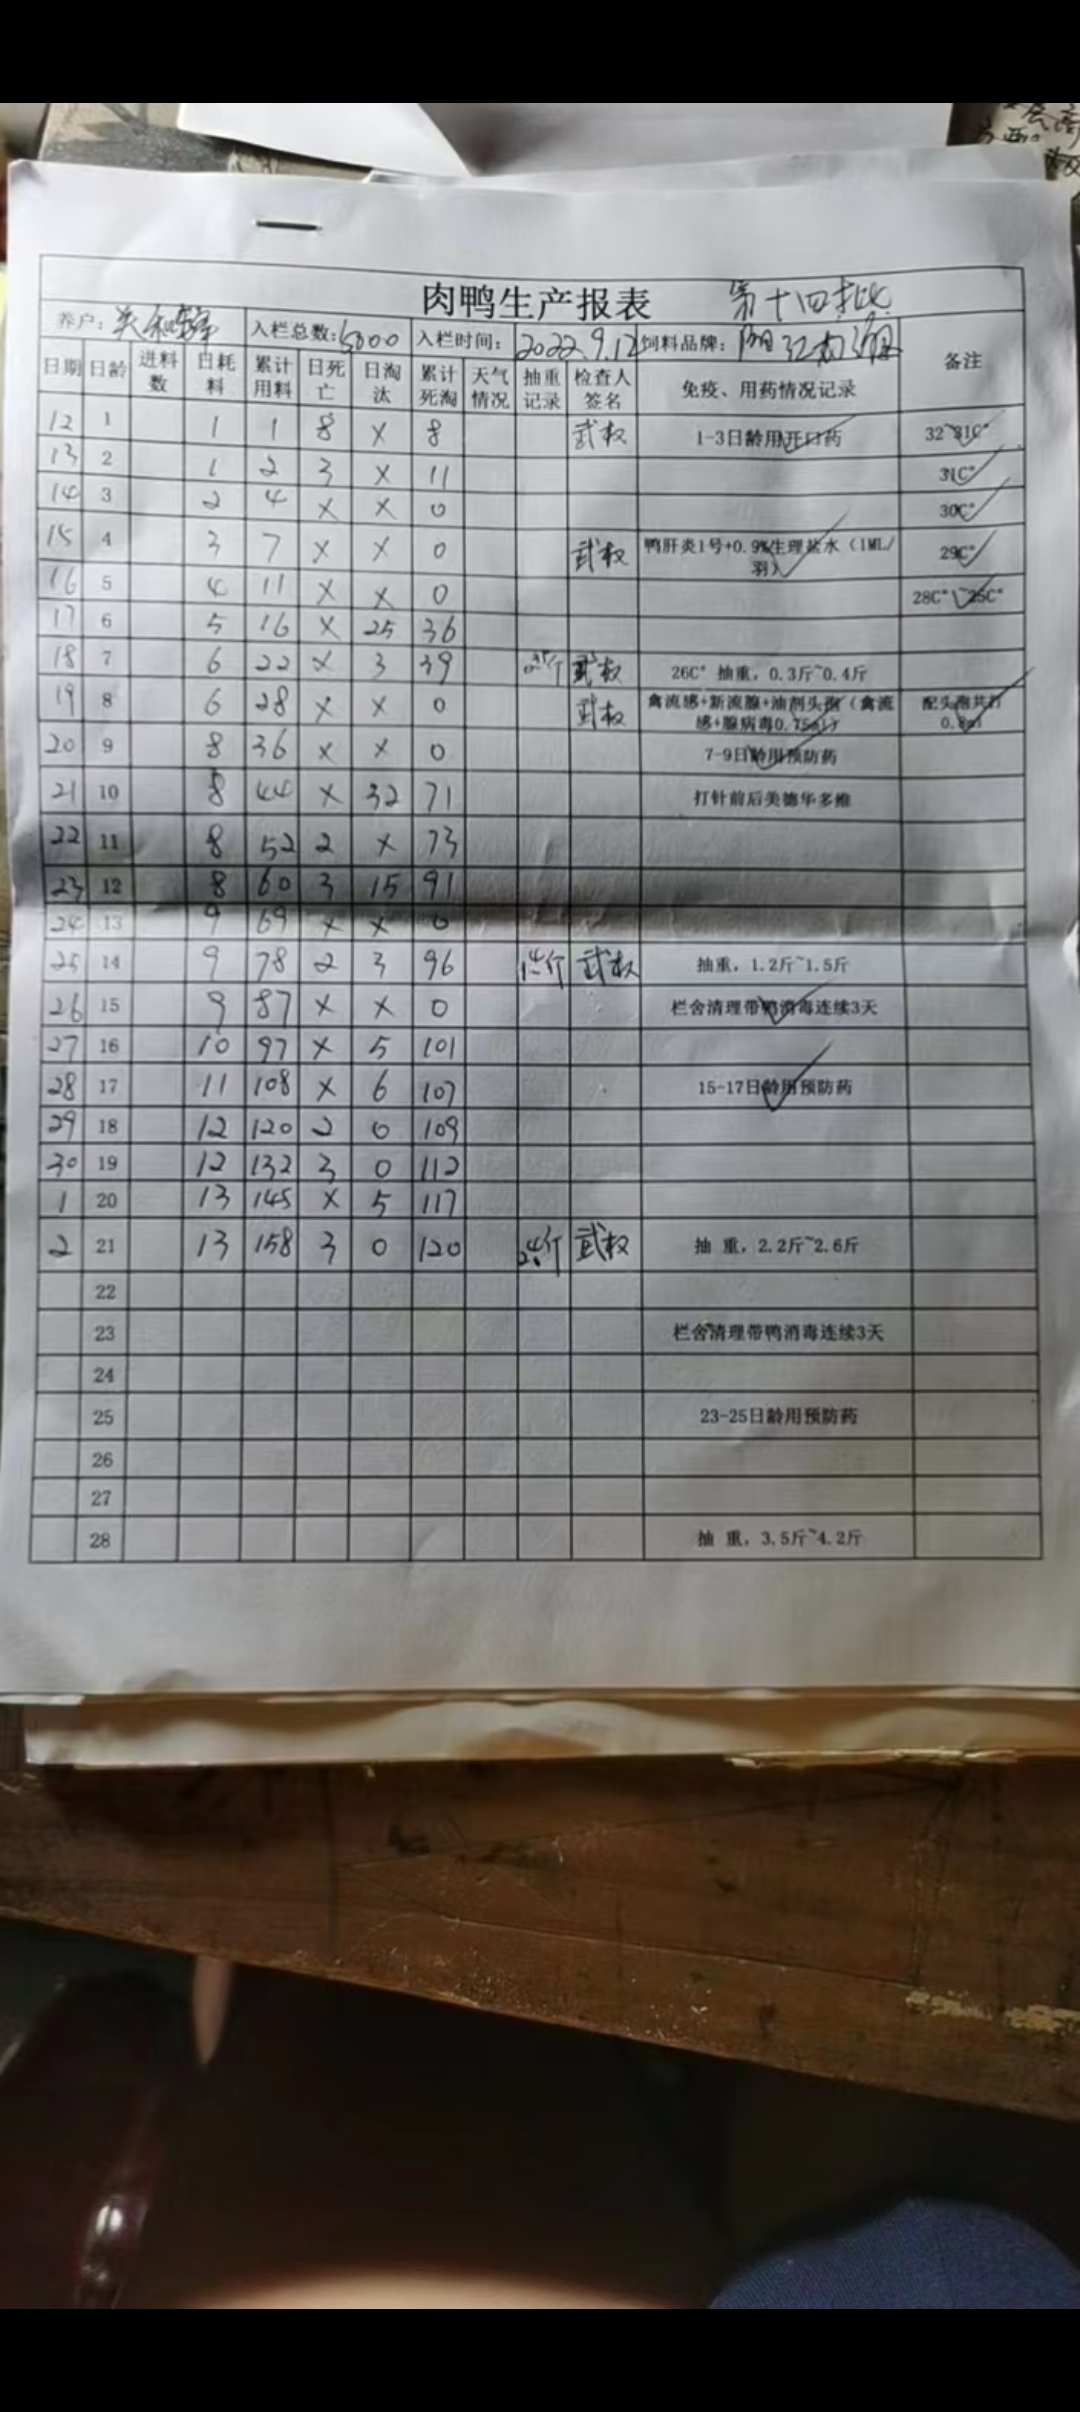 肉鸭生产报表 第十四批
养户： 入栏总数：5000 入栏时间：2022.9.12 饲料品牌：阳江 备注
日期 日龄 进料数 日耗料 累计用料 日死亡 日淘汰 累计死淘 天气情况 抽重记录 检查人签名 免疫、用药情况记录
12 1 1 1 8 × 8 武权 1-3日龄用开口药 32~31C°
13 2 1 2 3 × 11 31C°
14 3 2 4 × × 0 30C°
15 4 3 7 × × 0 武权 鸭肝炎1号+0.9%生理盐水（1ML/羽） 29C°
16 5 4 11 × × 0 28C°~25C°
17 6 5 16 × 25 36
18 7 6 22 × 3 39 武权 26C° 抽重，0.3斤~0.4斤
19 8 6 28 × × 0 武权 禽流感+新流腺+油剂头孢（禽流感+腺病毒0.75ml） 配头孢共打0.8ml
20 9 8 36 × × 0 7-9日龄用预防药
21 10 8 44 × 32 71 打针前后美德华多维
22 11 8 52 2 × 73
23 12 8 60 3 15 91
24 13 9 69 × × 0
25 14 9 78 2 3 96 1.4斤 武权 抽重，1.2斤~1.5斤
26 15 9 87 × × 0 栏舍清理带鸭消毒连续3天
27 16 10 97 × 5 101
28 17 11 108 × 6 107 15-17日龄用预防药
29 18 12 120 2 0 109
30 19 12 132 3 0 112
1 20 13 145 × 5 117
2 21 13 158 3 0 120 2.4斤 武权 抽 重，2.2斤~2.6斤
22
23 栏舍清理带鸭消毒连续3天
24
25 23-25日龄用预防药
26
27
28 抽 重，3.5斤~4.2斤